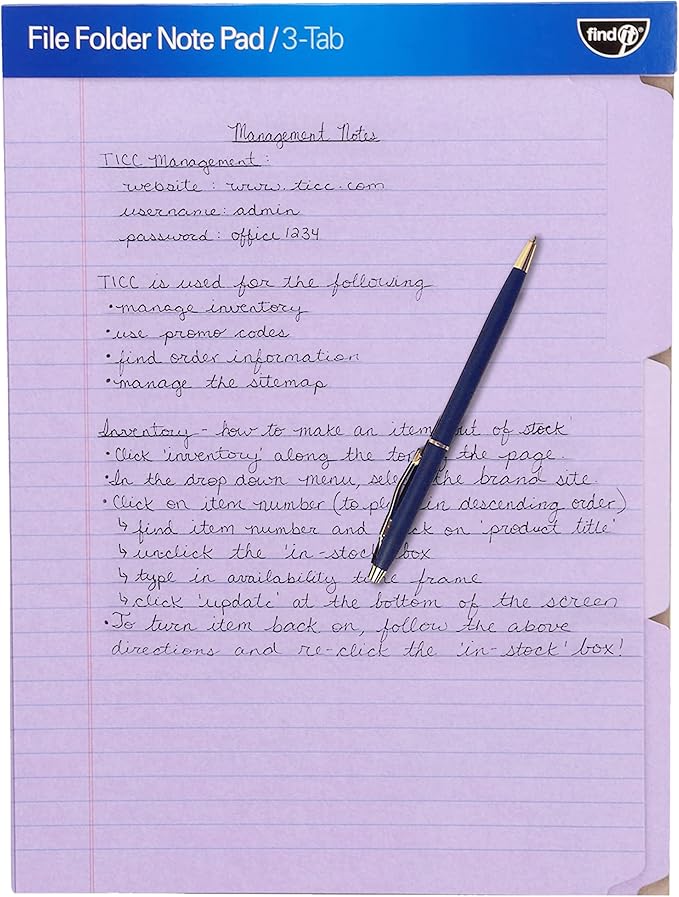 File Folder Note Pad / 3-Tab
find it®
Management Notes
TICC Management:
website: www.ticc.com
username: admin
password: office1234
TICC is used for the following
• manage inventory
• use promo codes
• find order information
• manage the sitemap
Inventory - how to make an item out of stock'
• Click 'inventory' along the top of the page.
• In the drop down menu, select the brand site.
• Click on item number (to in descending order)
↳ find item number and on 'product title'
↳ unclick the 'in-stock' box
↳ type in availability frame
↳ click 'update' at the bottom of the screen
• To turn item back on, follow the above
directions and re-click the 'in-stock' box!